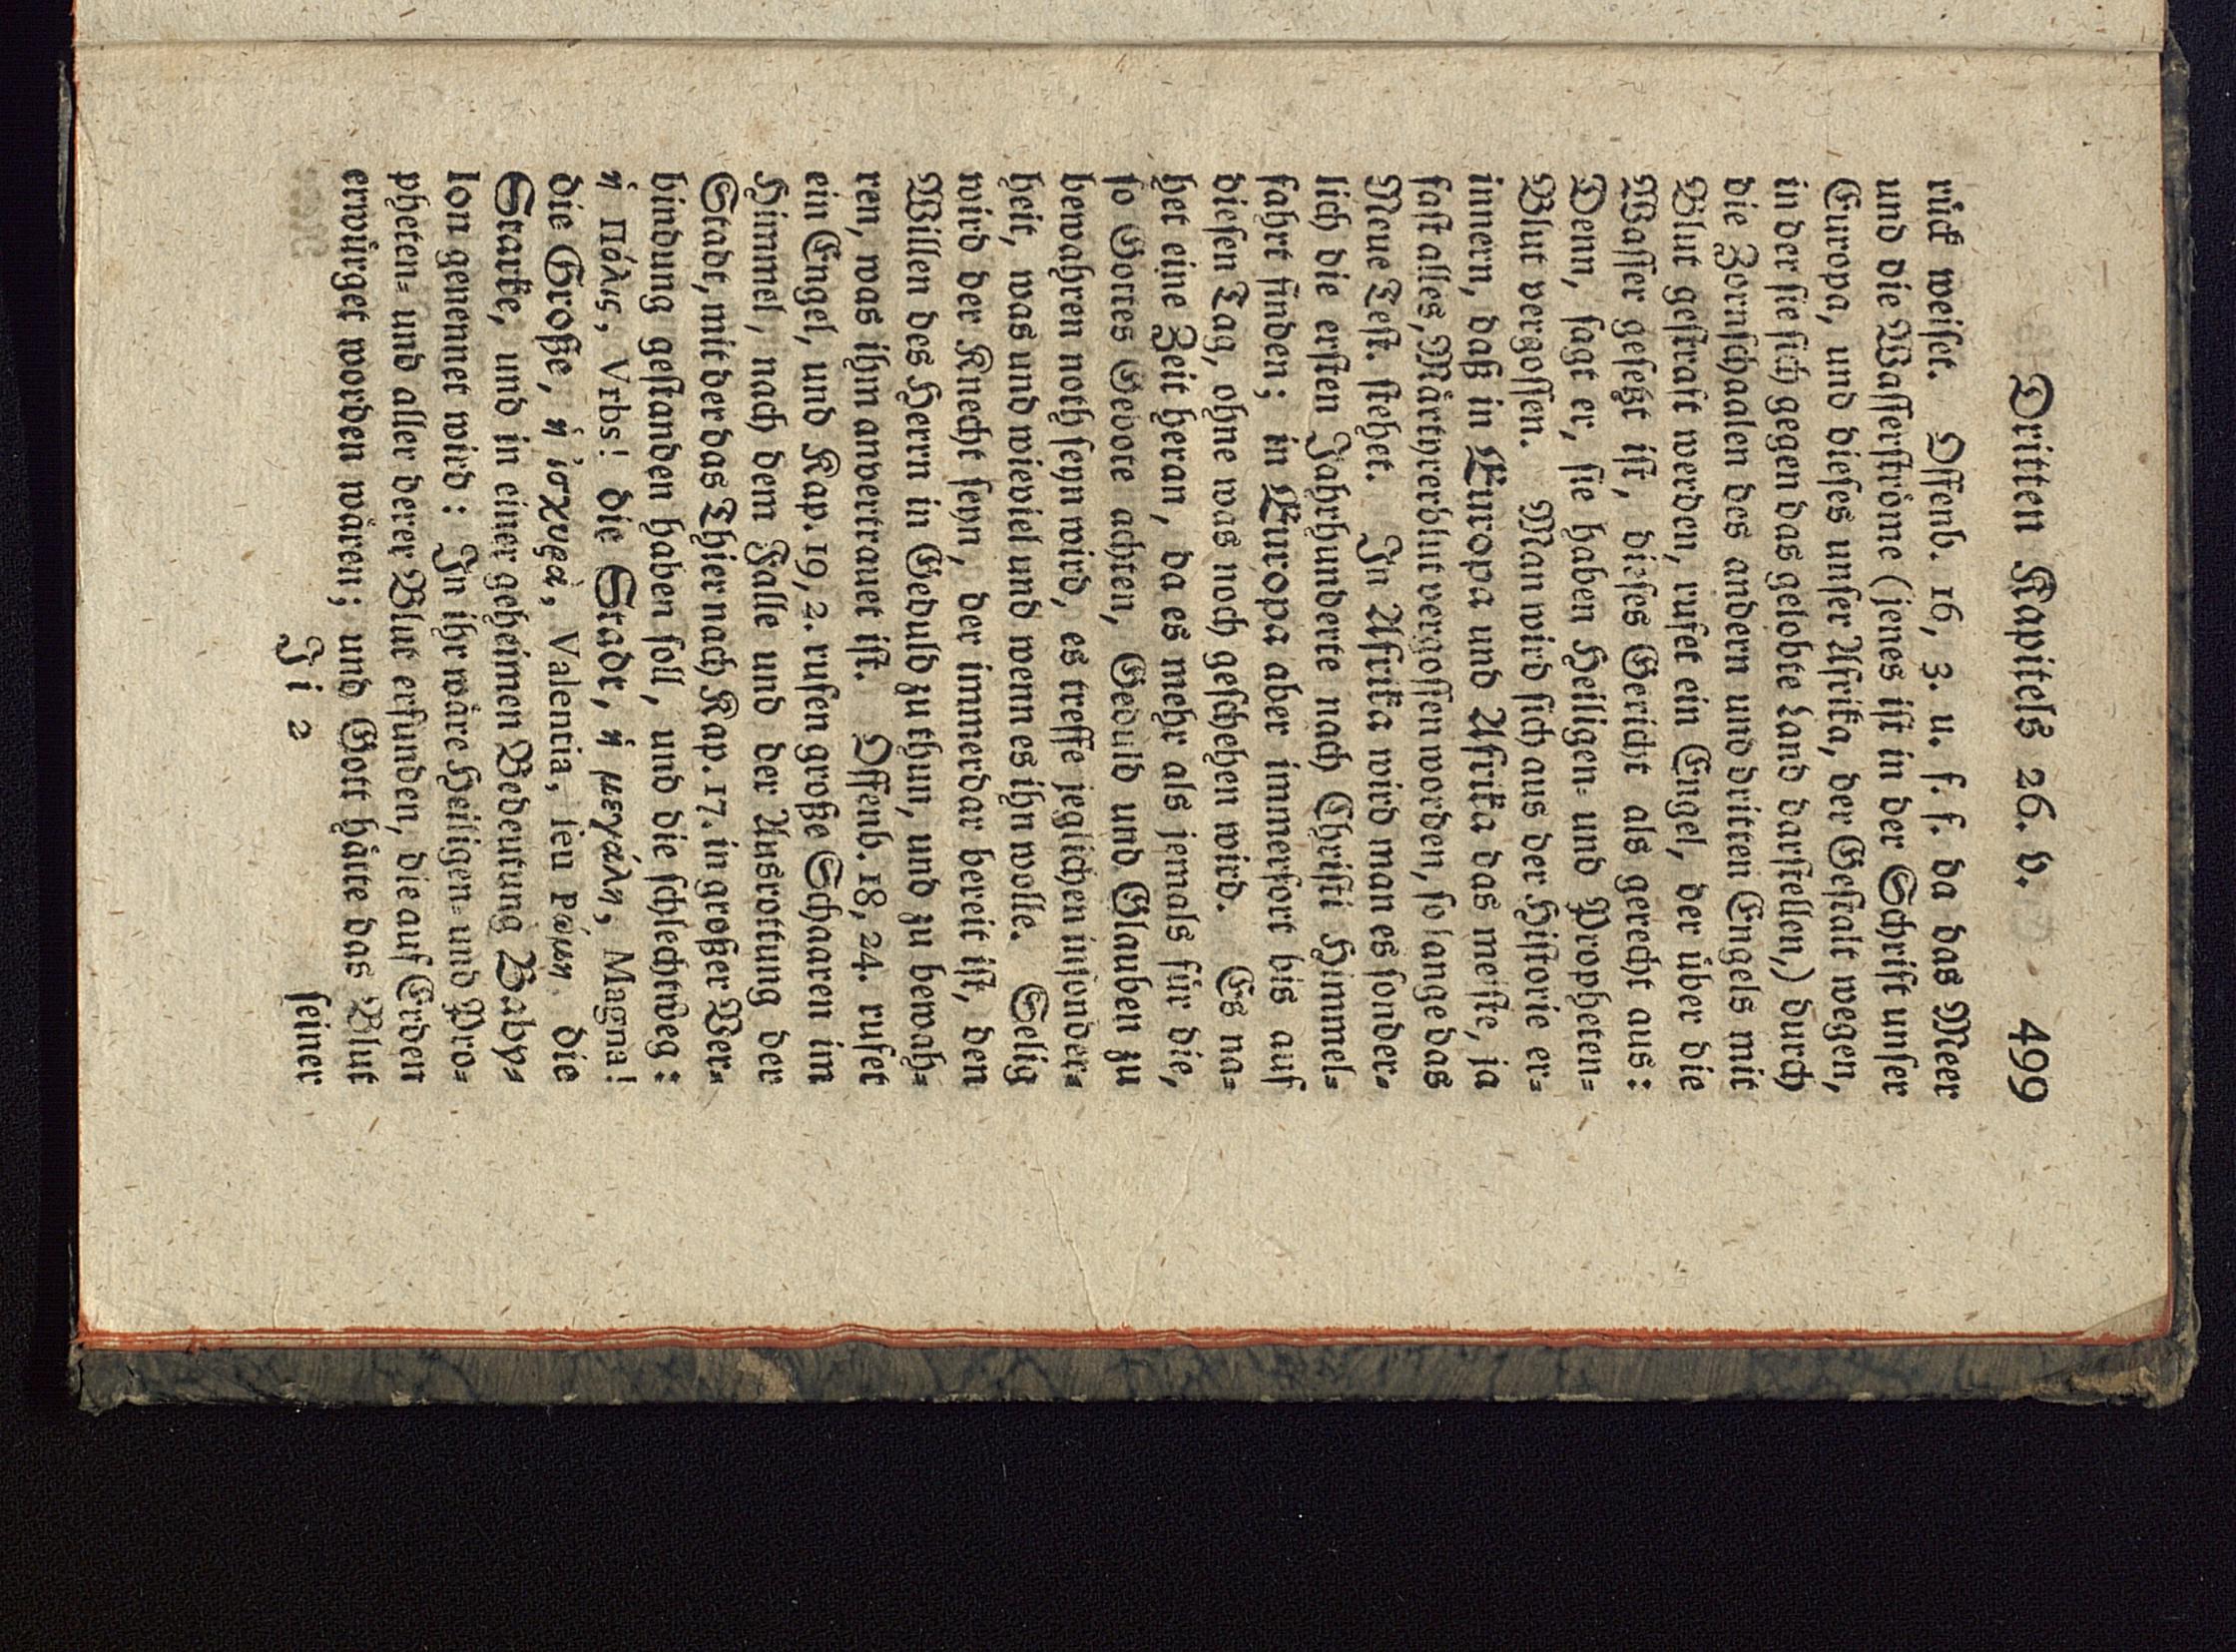 Dritten Kapitels 26. v. 499
rück weiset. Offenb. 16, 3. u. f. f. da das Meer
und die Wasserströme (jenes ist in der Schrift unser
Europa, und dieses unser Afrika, der Gestalt wegen,
in der sie sich gegen das gelobte Land darstellen,) durch
die Zornschaalen des andern und dritten Engels mit
Blut gestraft werden, rufet ein Engel, der über die
Wasser gesetzt ist, dieses Gericht als gerecht aus:
Denn, sagt er, sie haben Heiligen- und Propheten-
Blut vergossen. Man wird sich aus der Historie er-
innern, daß in Europa und Afrika das meiste, ja
fast alles, Märtyrerblut vergossen worden, so lange das
Neue Test. stehet. In Afrika wird man es sonder-
lich die ersten Jahrhunderte nach Christi Himmel-
fahrt finden; in Europa aber immerfort bis auf
diesen Tag, ohne was noch geschehen wird. Es na-
het eine Zeit heran, da es mehr als jemals für die,
so Gottes Gebote achten, Geduld und Glauben zu
bewahren noth seyn wird, es treffe jeglichen insonder-
heit, was und wieviel und wenn es ihn wolle. Selig
wird der Knecht seyn, der immerdar bereit ist, den
Willen des Herrn in Geduld zu thun, und zu bewah-
ren, was ihm anvertrauet ist. Offenb. 18, 24. rufet
ein Engel, und Kap. 19, 2. rufen große Schaaren im
Himmel, nach dem Falle und der Ausrottung der
Stadt, mit der das Thier nach Kap. 17. in großer Ver-
bindung gestanden haben soll, und die schlechtweg:
ἡ Πόλις, Vrbs! die Stadt, ἡ μεγάλη, Magna!
die Große, ἡ ἰσχυρὰ, Valentia, seu Ρώμη die
Starke, und in einer geheimen Bedeutung Baby-
lon genennet wird: In ihr wäre Heiligen- und Pro-
pheten- und aller derer Blut erfunden, die auf Erden
erwürget worden wären; und Gott hätte das Blut
Ji 2 seiner